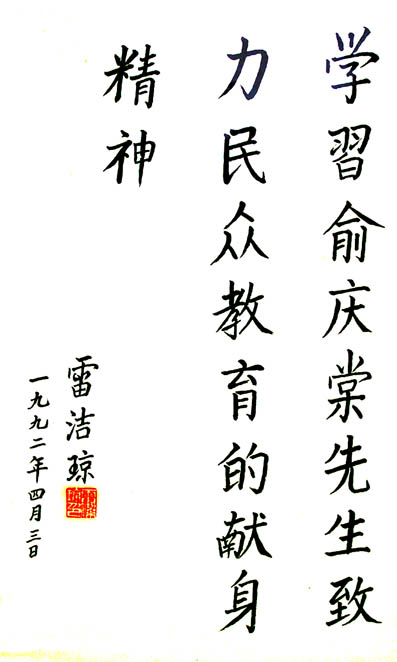 学習俞庆棠先生致
力民众教育的献身
精神
雷洁琼
一九九二年四月三日